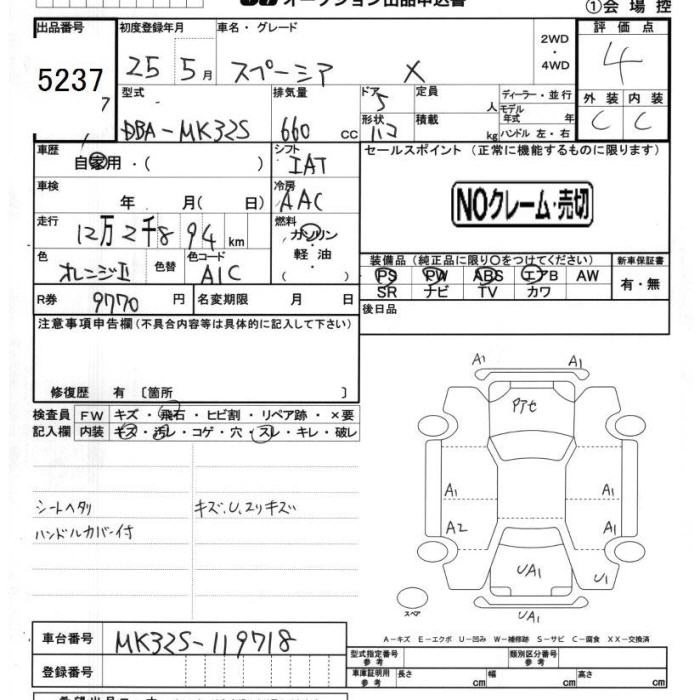 オークション出品申込書
①会場控
出品番号 5237 7
初度登録年月 25 5月
車名・グレード スペーシア X
2WD・4WD
評価点 4
外装 C 内装 C
型式 DBA-MK32S
排気量 660 cc
ドア 5 形状 ハコ
定員 人
積載 kg
ディーラー・並行
モデル年式 年
ハンドル 左・右
車歴 自家用・( )
シフト IAT
セールスポイント(正常に機能するものに限ります)
NOクレーム・売切
車検 年 月( 日)
冷房 AAC
走行 12万2千894km
燃料 ガソリン・軽油・( )
色 オレンジII 色替 色コード A1C
装備品(純正品に限り○をつけてください)
PS PW ABS エアB AW
SR ナビ TV カワ
新車保証書 有・無
R券 9770円 名変期限 月 日
後日品
注意事項申告欄(不具合内容等は具体的に記入して下さい)
修復歴 有 〔箇所 〕
検査員記入欄
FW キズ・飛石・ヒビ割・リペア跡・×要
内装 キズ・汚レ・コゲ・穴・スレ・キレ・破レ
シートヘタリ
ハンドルカバー付
キズ、U、エクリキズ
A1 A1
Pアセ
A1 A1
A2 A1
UA1 U1
UA1
スペア
A-キズ E-エクボ U-凹み W-補修跡 S-サビ C-腐食 XX-交換済
車台番号 MK32S-119718
登録番号
型式指定番号 参考
類別区分番号 参考
車庫証明用 参考 長さ cm 幅 cm 高さ cm